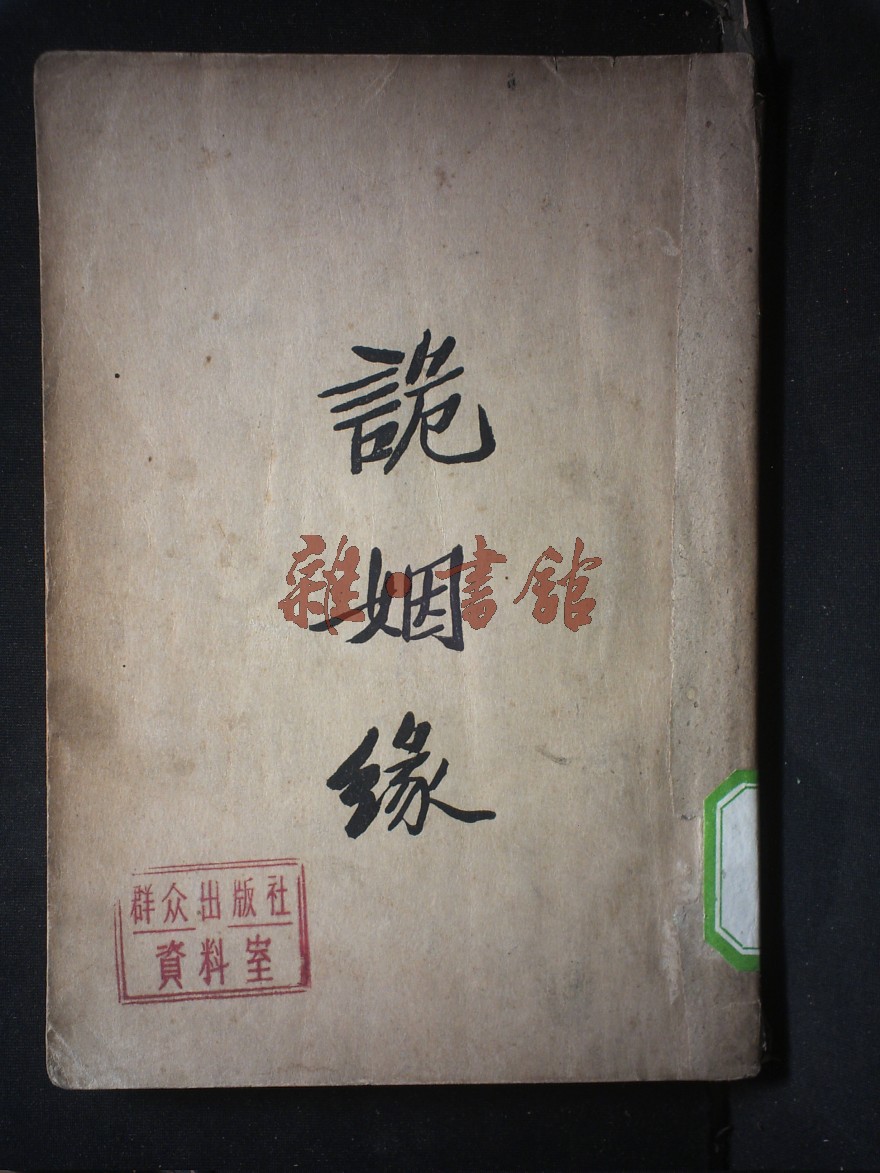 詭姻緣
雜·書館
群众出版社
資料室